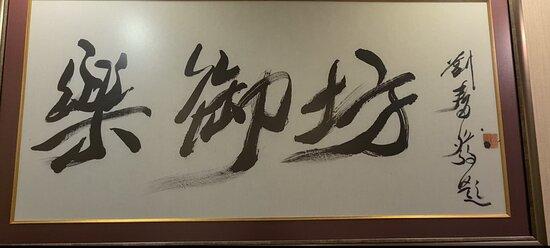 樂御坊
劉題